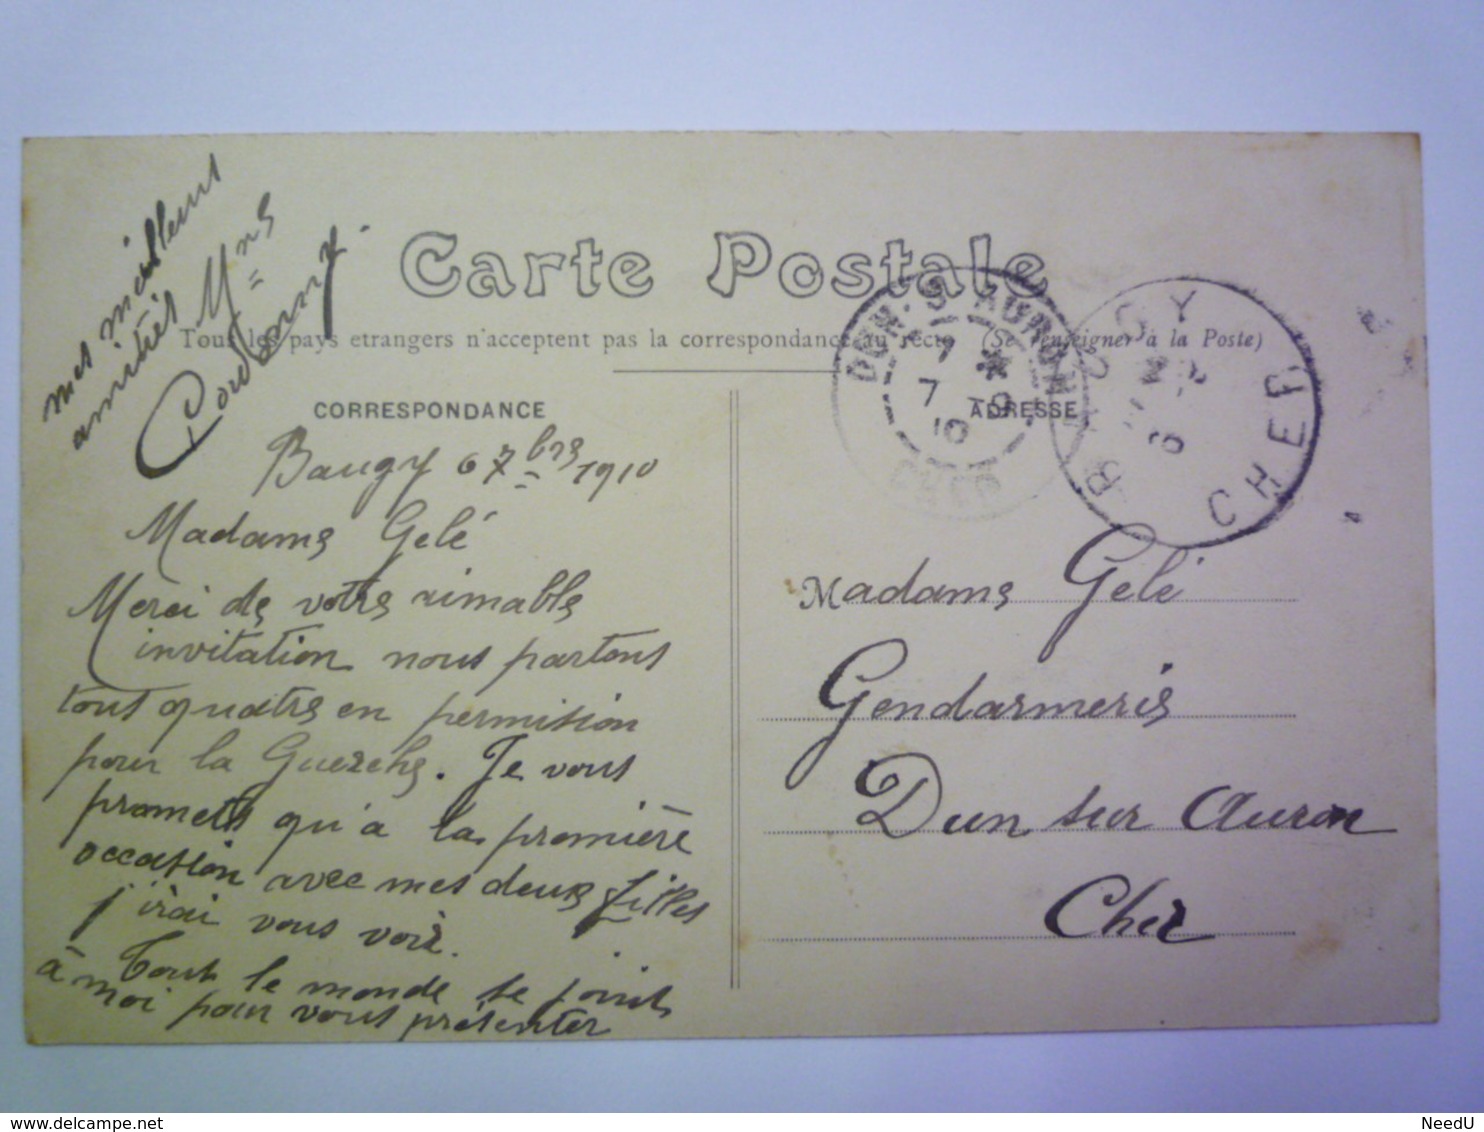 Carte Postale
Tous les pays etrangers n'acceptent pas la correspondance au recto (Se renseigner à la Poste)
CORRESPONDANCE
Baugy 6 7bre 1910
Madame Gelé
Merci de votre aimable
invitation nous partons
tous quatre en permission
pour la Guerche. Je vous
promets qu'a la première
occasion avec mes deux filles
j'irai vous voir.
Tout le monde se joint
à moi pour vous présenter
mes meilleurs
amitiés Mme
ADRESSE
Madame Gelé
Gendarmerie
Dun sur Auron
Cher
DUN-S-AURON
7 *
7 - 9
10
CHER
BAUGY
CHER
NeedU